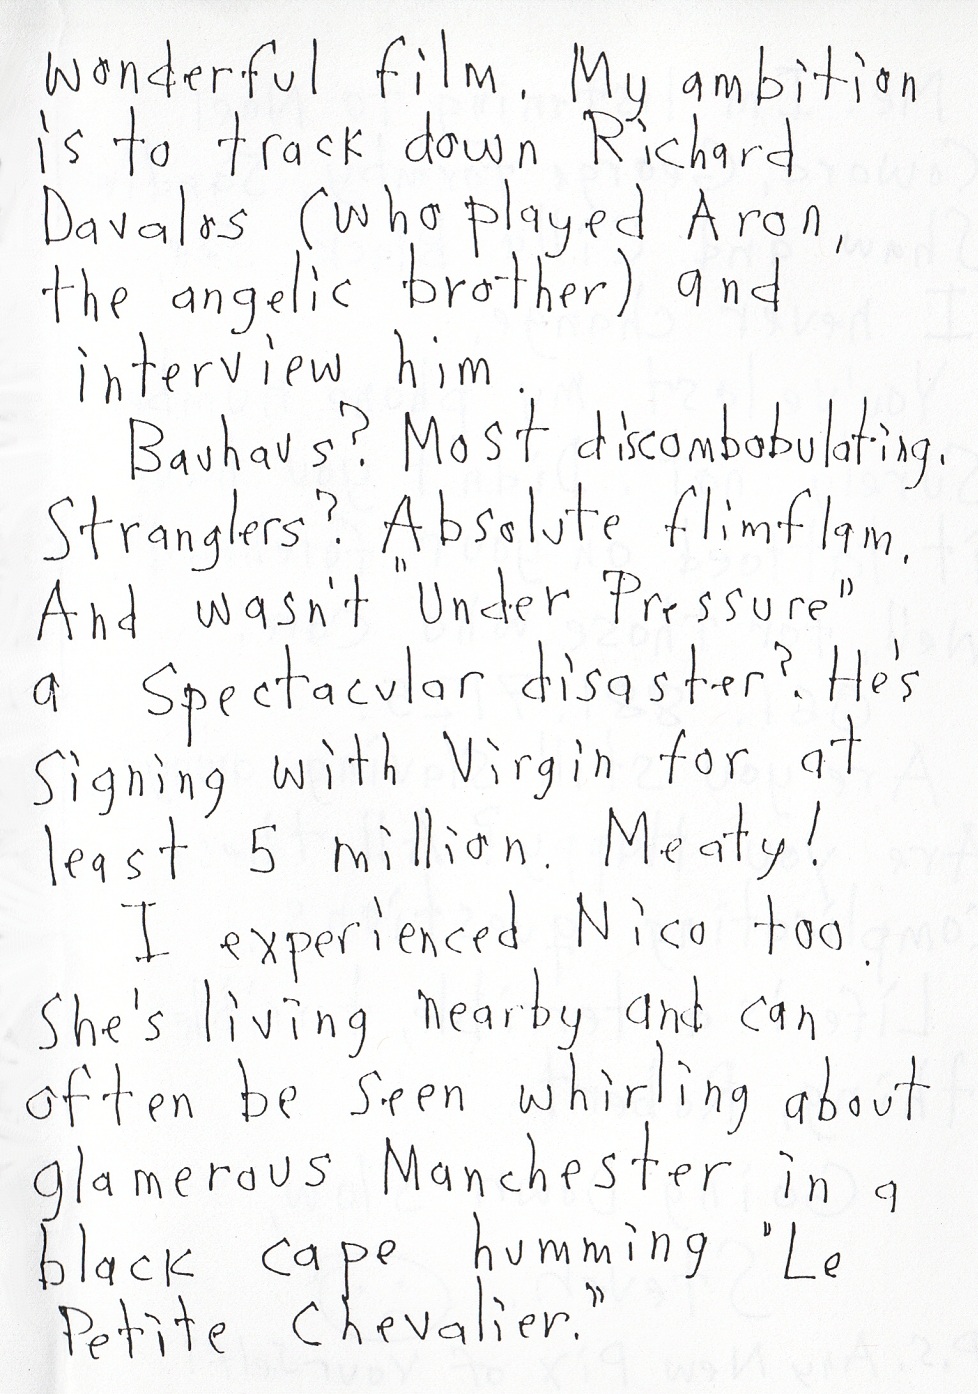 wonderful film. My ambition
is to track down Richard
Davalos (who played Aron,
the angelic brother) and
interview him.
Bauhaus? Most discombobulating.
Stranglers? Absolute flimflam.
And wasn't "Under Pressure"
a spectacular disaster? He's
signing with Virgin for at
least 5 million. Meaty!
I experienced Nico too.
She's living nearby and can
often be seen whirling about
glamerous Manchester in a
black cape humming "Le
Petite Chevalier."